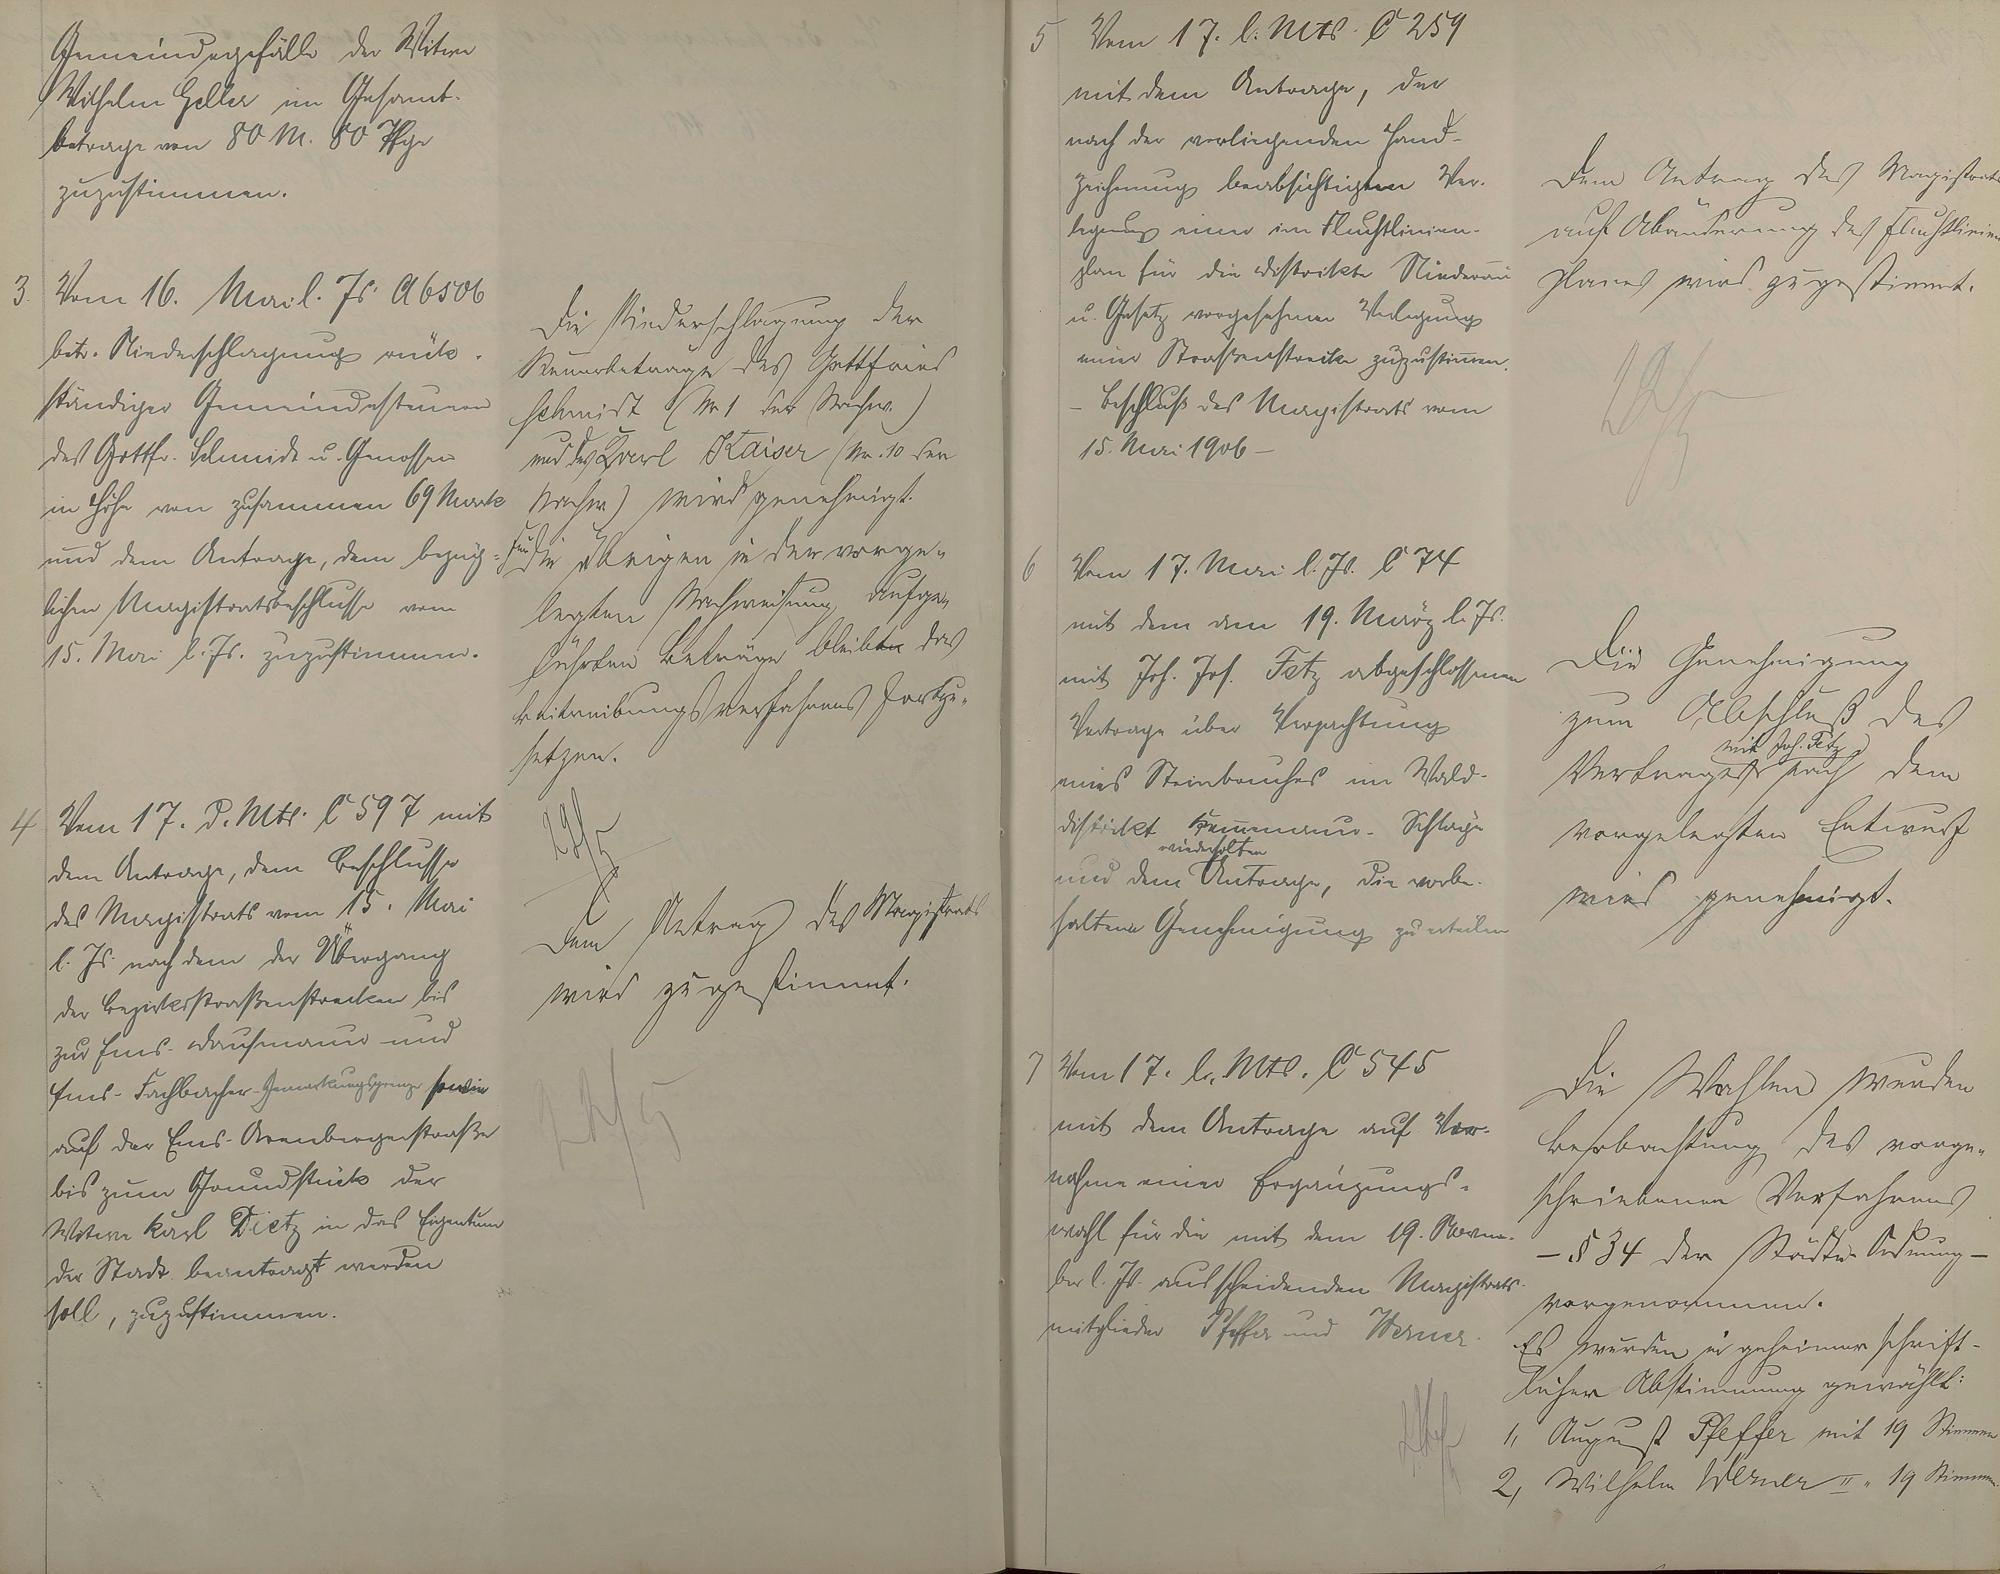 Gemeindegefälle der Witwe
Wilhelm Geller im Gesamt-
betrage von 80 M. 80 Pfge
zuzustimmen.
3. Vom 16. Mai l. Js. A 6506
betr. Niederschlagung rück-
ständiger Gemeindesteuern
des Gottfr. Schmidt u. Genossen
in Höhe von zusammen 69 Mark
und dem Antrage, dem bezüg-
lichen Magistratsbeschlusse vom
15. Mai l. Js. zuzustimmen.
Die Niederschlagung der
Steuerbetrage des Gottfried
Schmidt (Nr 1 der Nachw.)
und des Karl Kaiser (Nr. 10 der
Nachw) wird genehmigt.
Für die übrigen in der vorge-
legten Nachweisung aufge-
führten Beträge bleibt das
Beitreibungsverfahrens fortzu-
setzen.
22/5
4 Vom 17. d. Mts. C 597 mit
dem Antrage, dem Beschlusse
des Magistrats vom 15. Mai
l. Js. nach dem der Übergang
der Bezirksstraßenstrecken bis
zur Ems- Dausenau und
Ems- Fachbacher-Gemarkungsgrenze sowie
auf der Ems-Arenbergerstraße
bis zum Grundstück der
Witwe Karl Dietz in das Eigentum
der Stadt beantragt werden
soll, zuzustimmen.
Dem Antrag des Magistrats
wird zugestimmt.
22/5
5 Vom 17. l. Mts. C 259
mit dem Antrage, der
nach der vorliegenden Hand-
zeichnung beabsichtigten Ver-
legung einer im Fluchtlinien-
plan für die Distrikte Niederau
u. Gesetz vorgesehenen Verlegung
einer Straßenstrecke zuzustimmen.
- Beschluß des Magistrats vom
15. Mai 1906 -
Dem Antrag des Magistrats
auf Abänderung des Fluchtlinien
planes wird zugestimmt.
22/5
6 Vom 17. Mai l. Js. C 74
mit dem am 19. März l. Js.
mit Joh. Jos. Fetz abgeschlossenen
Vertrage über Verpachtung
eines Steinbruches im Wald-
distrikt Schläge
wiederholten
und dem Antrage, die vorbe-
haltene Genehmigung zu erteilen
Die Genehmigung
zum Abschluß des
mit Joh. Fetz
Vertrages nach dem
vorgelegten Entwurf
wird genehmigt.
7 Vom 17. l. Mts. C 545
mit dem Antrage auf Vor-
nahme einer Ergänzungs-
wahl für die mit dem 19. Novem-
ber l. Js. ausscheidenden Magistrats-
mitglieder Pfeffer und Werner.
Die Wahlen wurden
Beobachtung des vorge-
schriebenen Verfahrens
- § 34 der Städte-Ordnung -
vorgenommen.
Es wurden in geheimer schrift-
licher Abstimmung gewählt:
1, August Pfeffer mit 19 Stimmen
2, Wilhelm Werner II " 19 Stimmen